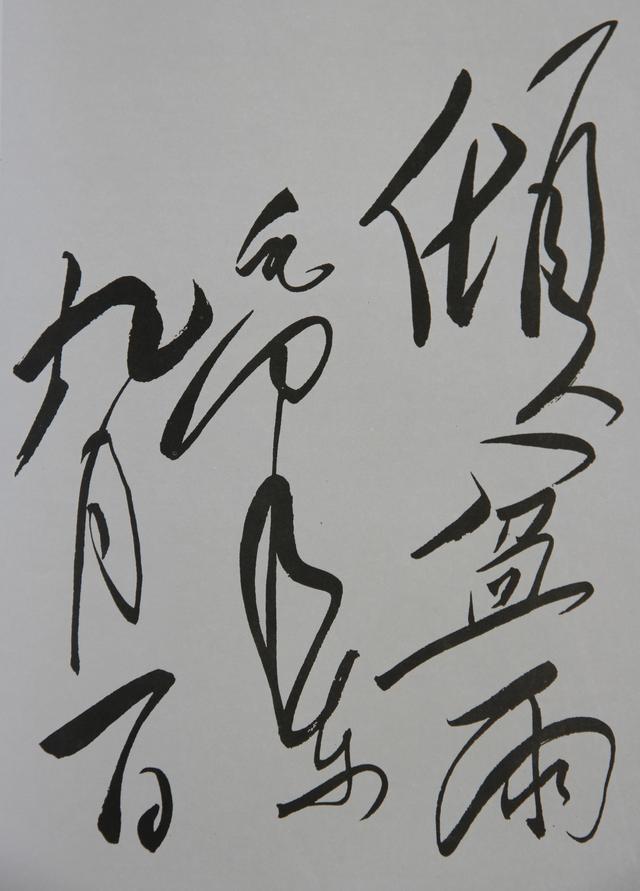 傾盆雨
毛澤東
九月一日